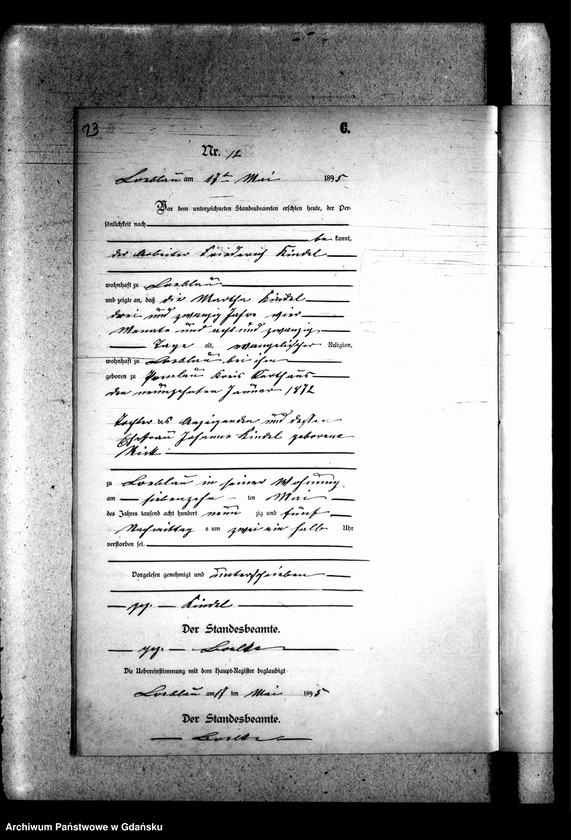 23
C.
Nr. 12
Loeblau am 17ten Mai 1895
Vor dem unterzeichneten Standesbeamten erschien heute, der Per-
sönlichkeit nach
be kannt,
der Arbeiter Friederich Kindel
wohnhaft zu Loeblau
und zeigte an, daß die Martha Kindel
drei und zwanzig Jahre vier
Monate und acht und zwanzig
Tage alt, evangelischer Religion,
wohnhaft zu Loeblau bei ihm
geboren zu Kreis Carthaus
den neunzehnten Januar 1872
Tochter des Anzeigenden und dessen
Ehefrau Johanna Kindel geborene
zu Loeblau in seiner Wohnung
am siebenzehn ten Mai
des Jahres tausend acht hundert neun zig und fünf
Nachmittag s um zwei ein halb Uhr
verstorben sei.
Vorgelesen genehmigt und unterschrieben
gez. Kindel
Der Standesbeamte.
gez. Boelke
Die Uebereinstimmung mit dem Haupt-Register beglaubigt
Loeblau am 17 ten Mai 1895
Der Standesbeamte.
Boelke
Archiwum Państwowe w Gdańsku